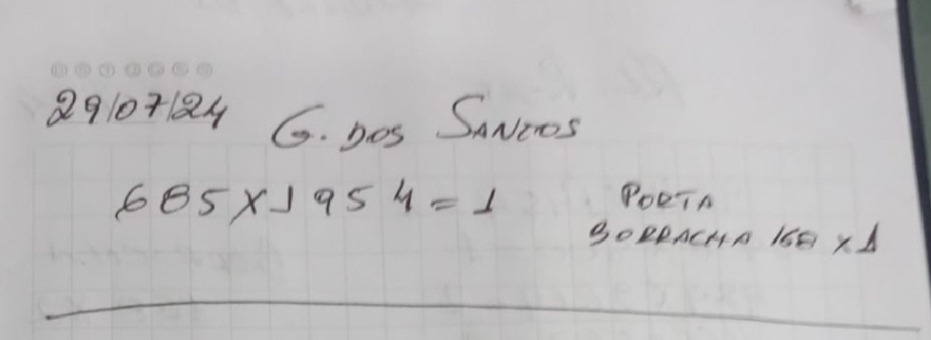 29/07/24 G. DOS SANTOS
685 x 1954 = 1 PORTA
BORRACHA 168 x 1